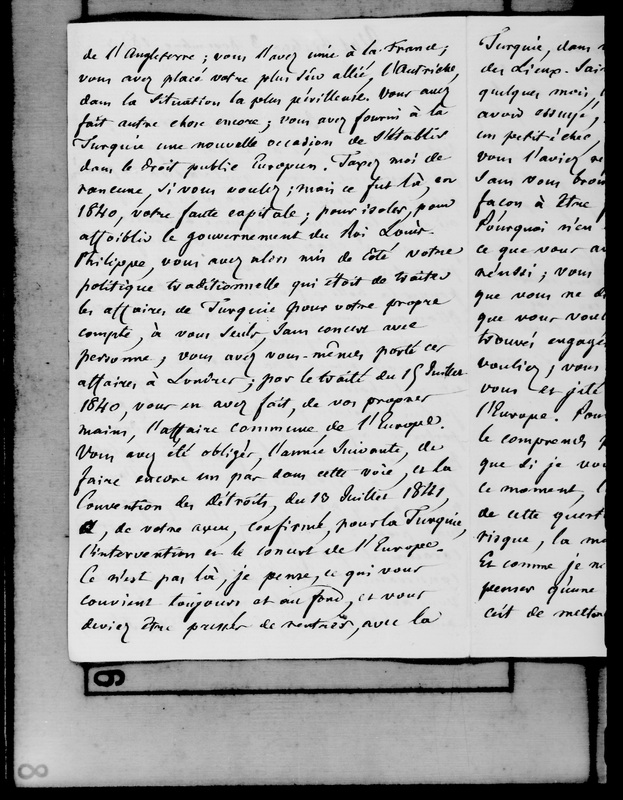 de l'Angleterre ; vous l'avez unie à la France ;
vous avez placé votre plus sûr allié, l'Autriche,
dans la situation la plus périlleuse. Vous avez
fait autre chose encore ; vous avez fourni à la
Turquie une nouvelle occasion de s'établir
dans le droit public Européen. Taxez moi de
rancune, si vous voulez ; mais ce fut là, en
1840, votre faute capitale ; pour isoler, pour
affaiblir le gouvernement du Roi Louis-
Philippe, vous avez alors mis de côté votre
politique traditionnelle qui était de traiter
les affaires de Turquie pour votre propre
compte, à vous seuls, sans concert avec
personne ; vous avez vous-mêmes porté ces
affaires à Londres ; par le traité du 15 Juillet
1840, vous en avez fait, de vos propres
mains, l'affaire commune de l'Europe.
Vous avez été obligés, l'année suivante, de
faire encore un pas dans cette voie, et la
Convention des Détroits, du 13 Juillet 1841,
a, de votre aveu, confirmé, pour la Turquie,
l'intervention et le concert de l'Europe.
Ce n'est pas là, je pense, ce qui vous
convient toujours et au fond, et vous
deviez être pressés de rentrer, avec la
Turquie, dans
des Lieux. Sai
quelques mois,
avoir essuyé,
un petit échec,
vous l'aviez
sans vous
façon à être
Pourquoi n'en
ce que vous
réussi ; vous
que vous ne
que vous
trouvés engagé
vouliez ; vous
vous et jeté
l'Europe. Pour
le comprends
que si je
ce moment,
de cette quest
risque, la
Et comme je ne
penser qu'une
cit de metton
6
8